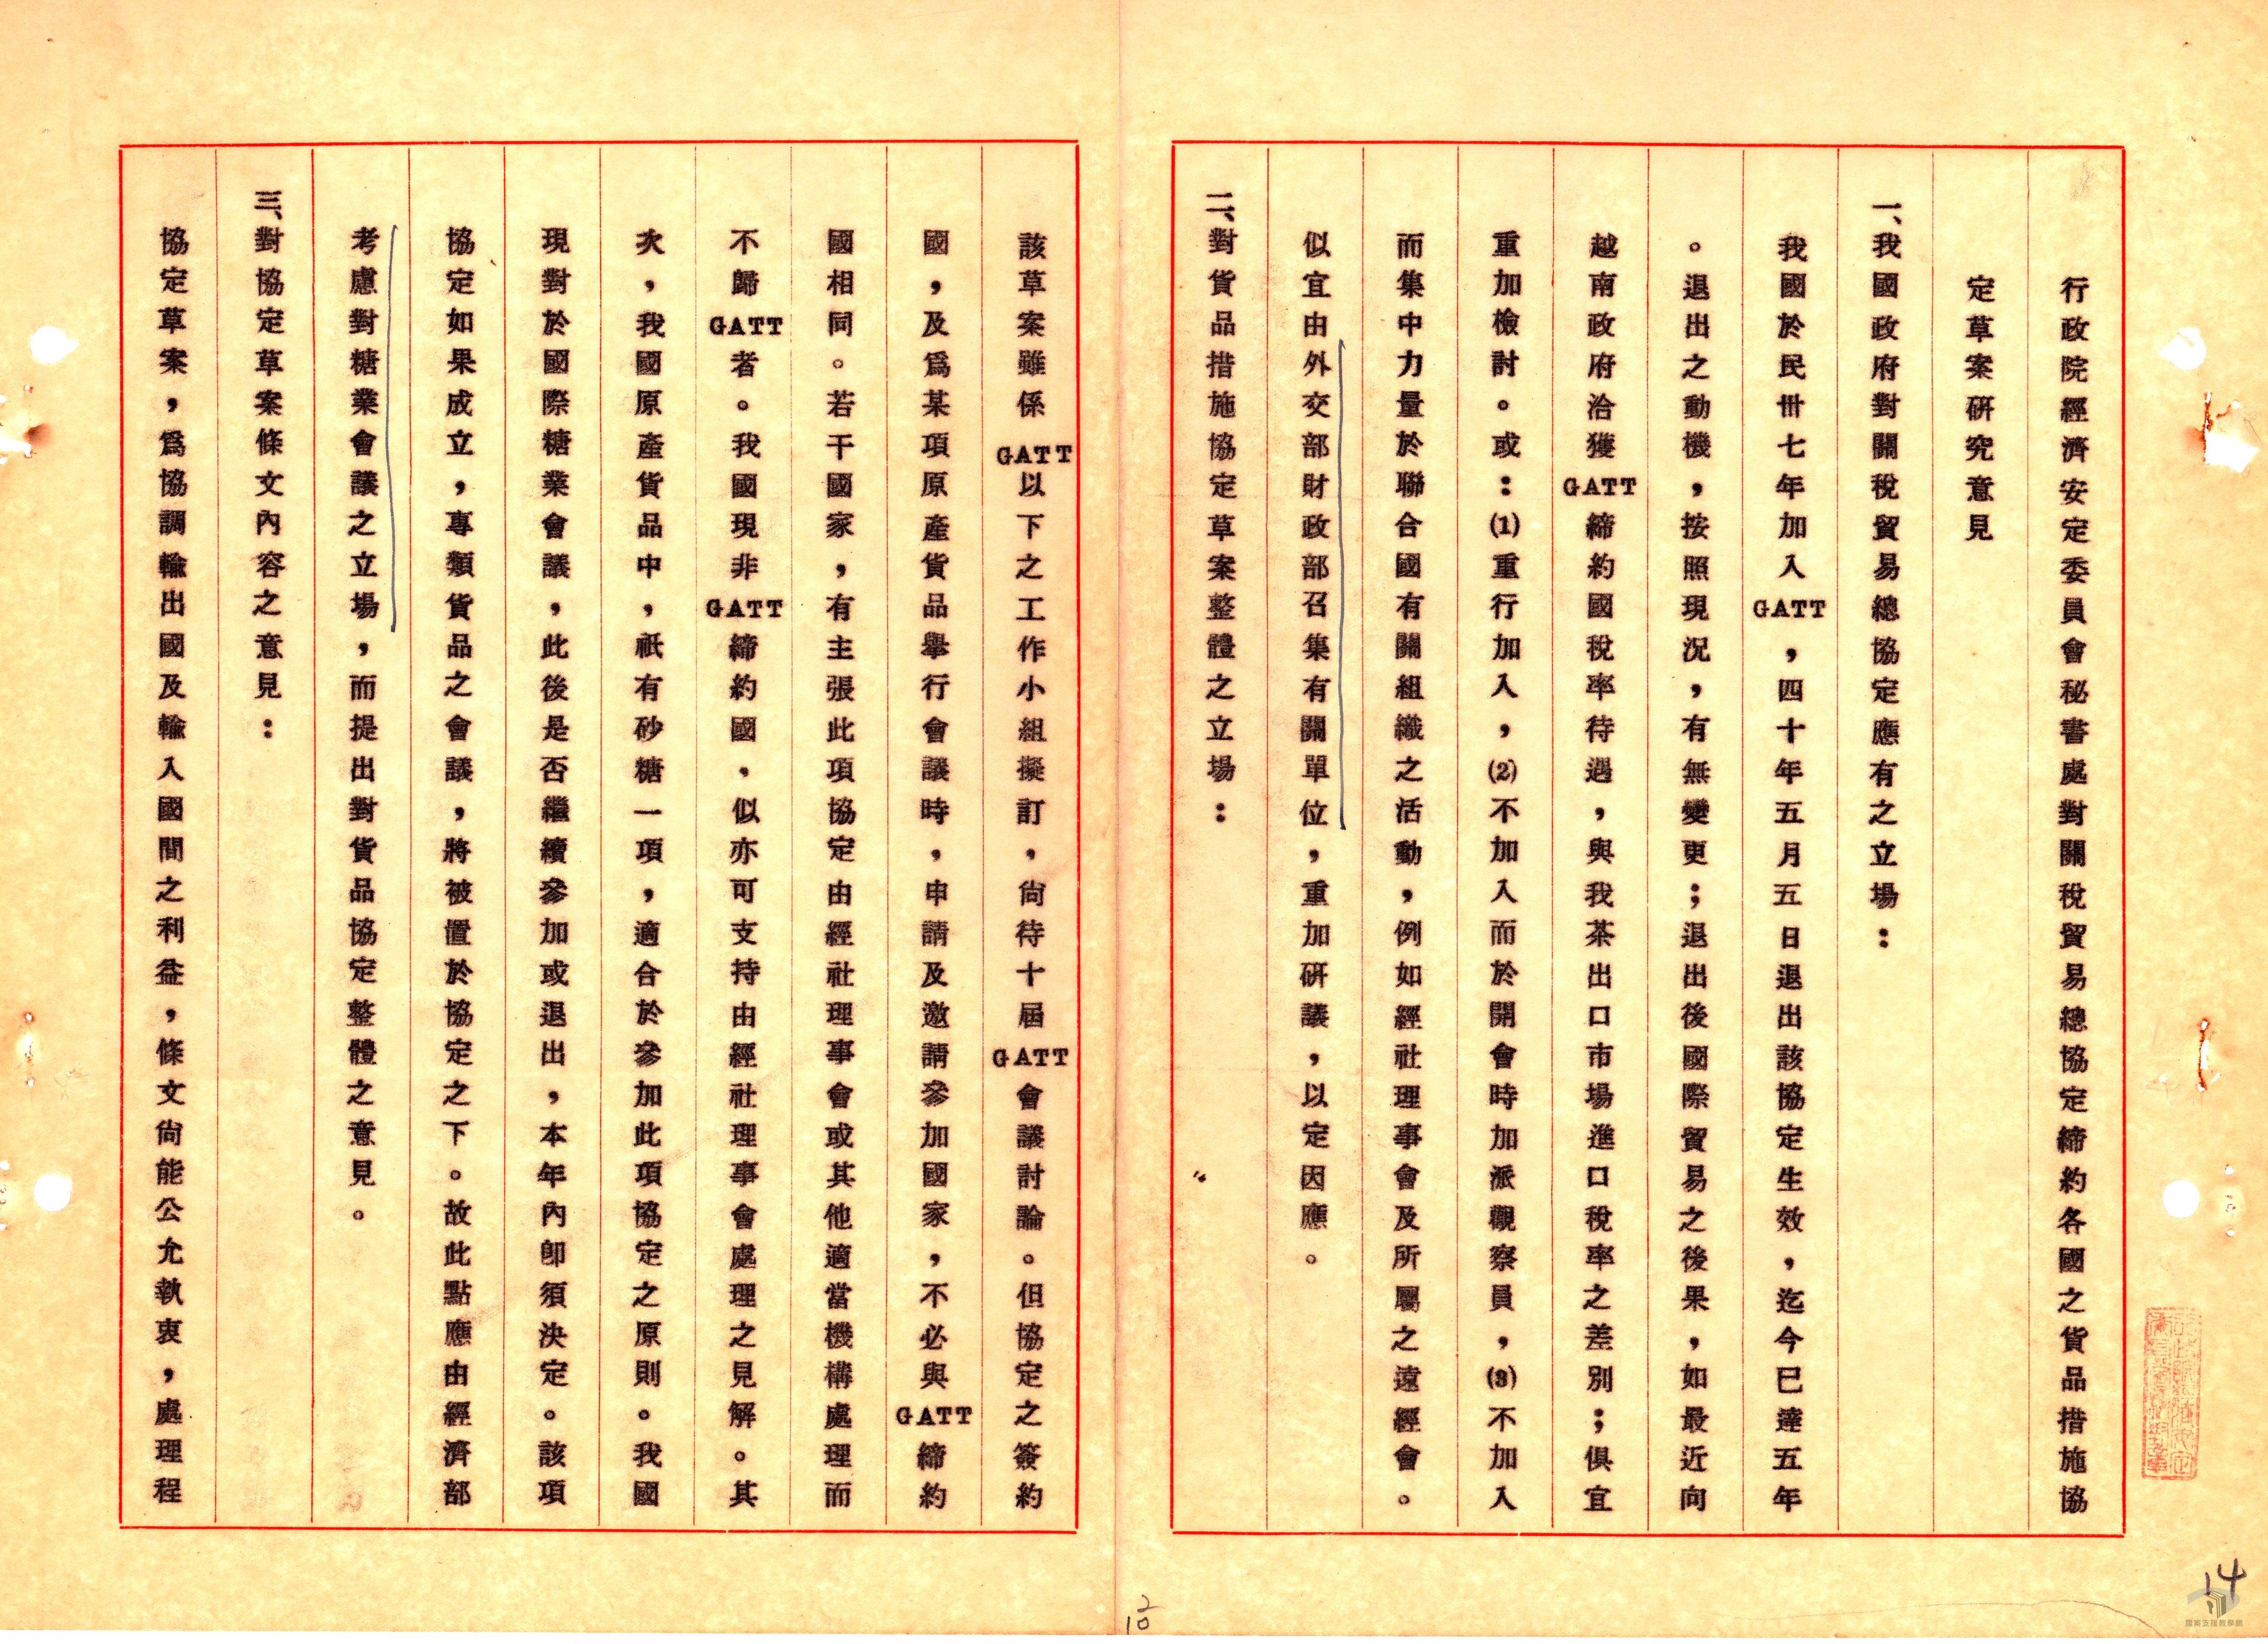 行政院經濟安定委員會秘書處對關稅貿易總協定締約各國之貨品措施協
定草案研究意見
一、我國政府對關稅貿易總協定應有之立場：
我國於民卅七年加入GATT，四十年五月五日退出該協定生效，迄今已達五年
。退出之動機，按照現況，有無變更；退出後國際貿易之後果，如最近向
越南政府洽獲GATT締約國稅率待遇，與我茶出口市場進口稅率之差別；俱宜
重加檢討。或：(1)重行加入，(2)不加入而於開會時加派觀察員，(3)不加入
而集中力量於聯合國有關組織之活動，例如經社理事會及所屬之遠經會。
似宜由外交部財政部召集有關單位，重加研議，以定因應。
二、對貨品措施協定草案整體之立場：
該草案雖係GATT以下之工作小組擬訂，尚待十屆GATT會議討論。但協定之簽約
國，及爲某項原產貨品舉行會議時，申請及邀請參加國家，不必與GATT締約
國相同。若干國家，有主張此項協定由經社理事會或其他適當機構處理而
不歸GATT者。我國現非GATT締約國，似亦可支持由經社理事會處理之見解。其
次，我國原產貨品中，祇有砂糖一項，適合於參加此項協定之原則。我國
現對於國際糖業會議，此後是否繼續參加或退出，本年內卽須決定。該項
協定如果成立，專類貨品之會議，將被置於協定之下。故此點應由經濟部
考慮對糖業會議之立場，而提出對貨品協定整體之意見。
三、對協定草案條文內容之意見：
協定草案，爲協調輸出國及輸入國間之利益，條文尚能公允執衷，處理程
14
2
10
檔案支援教學網